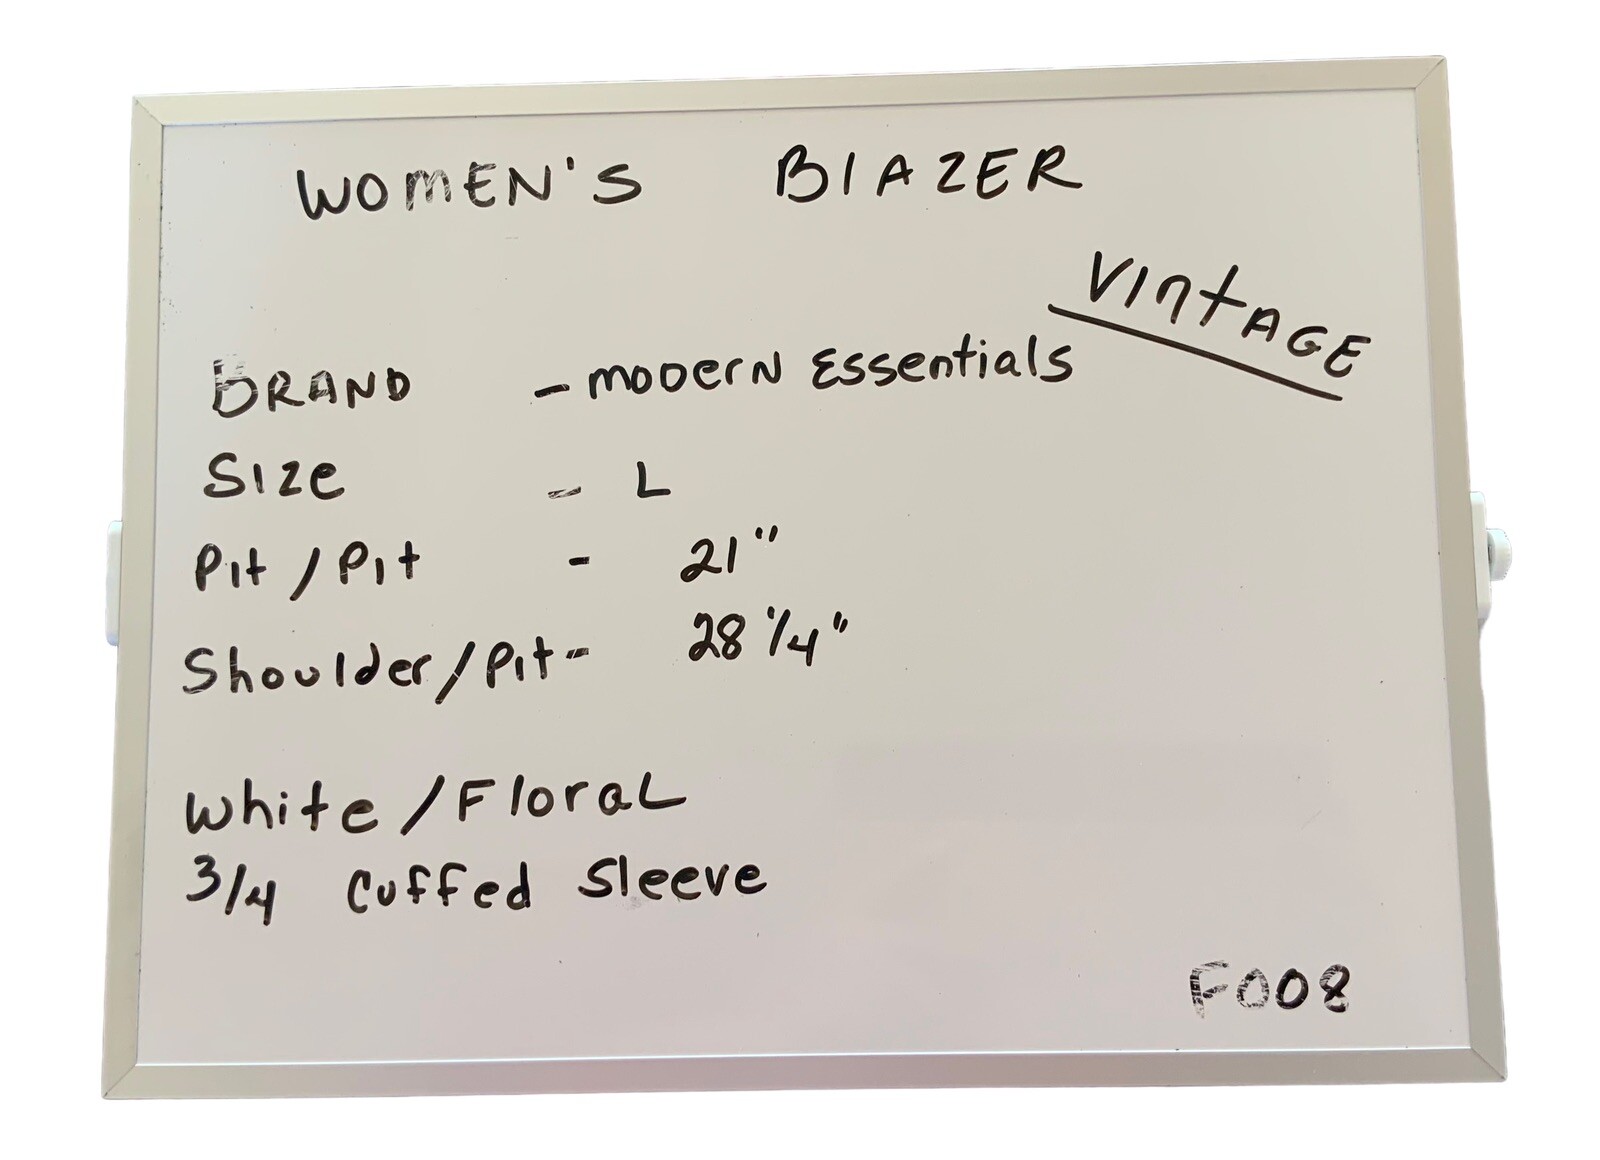 WOMEN'S BlAZER
VintAGE
BRAND - modern Essentials
Size - L
Pit / Pit - 21"
Shoulder/Pit - 28 1/4"
White / Floral
3/4 cuffed sleeve
F008